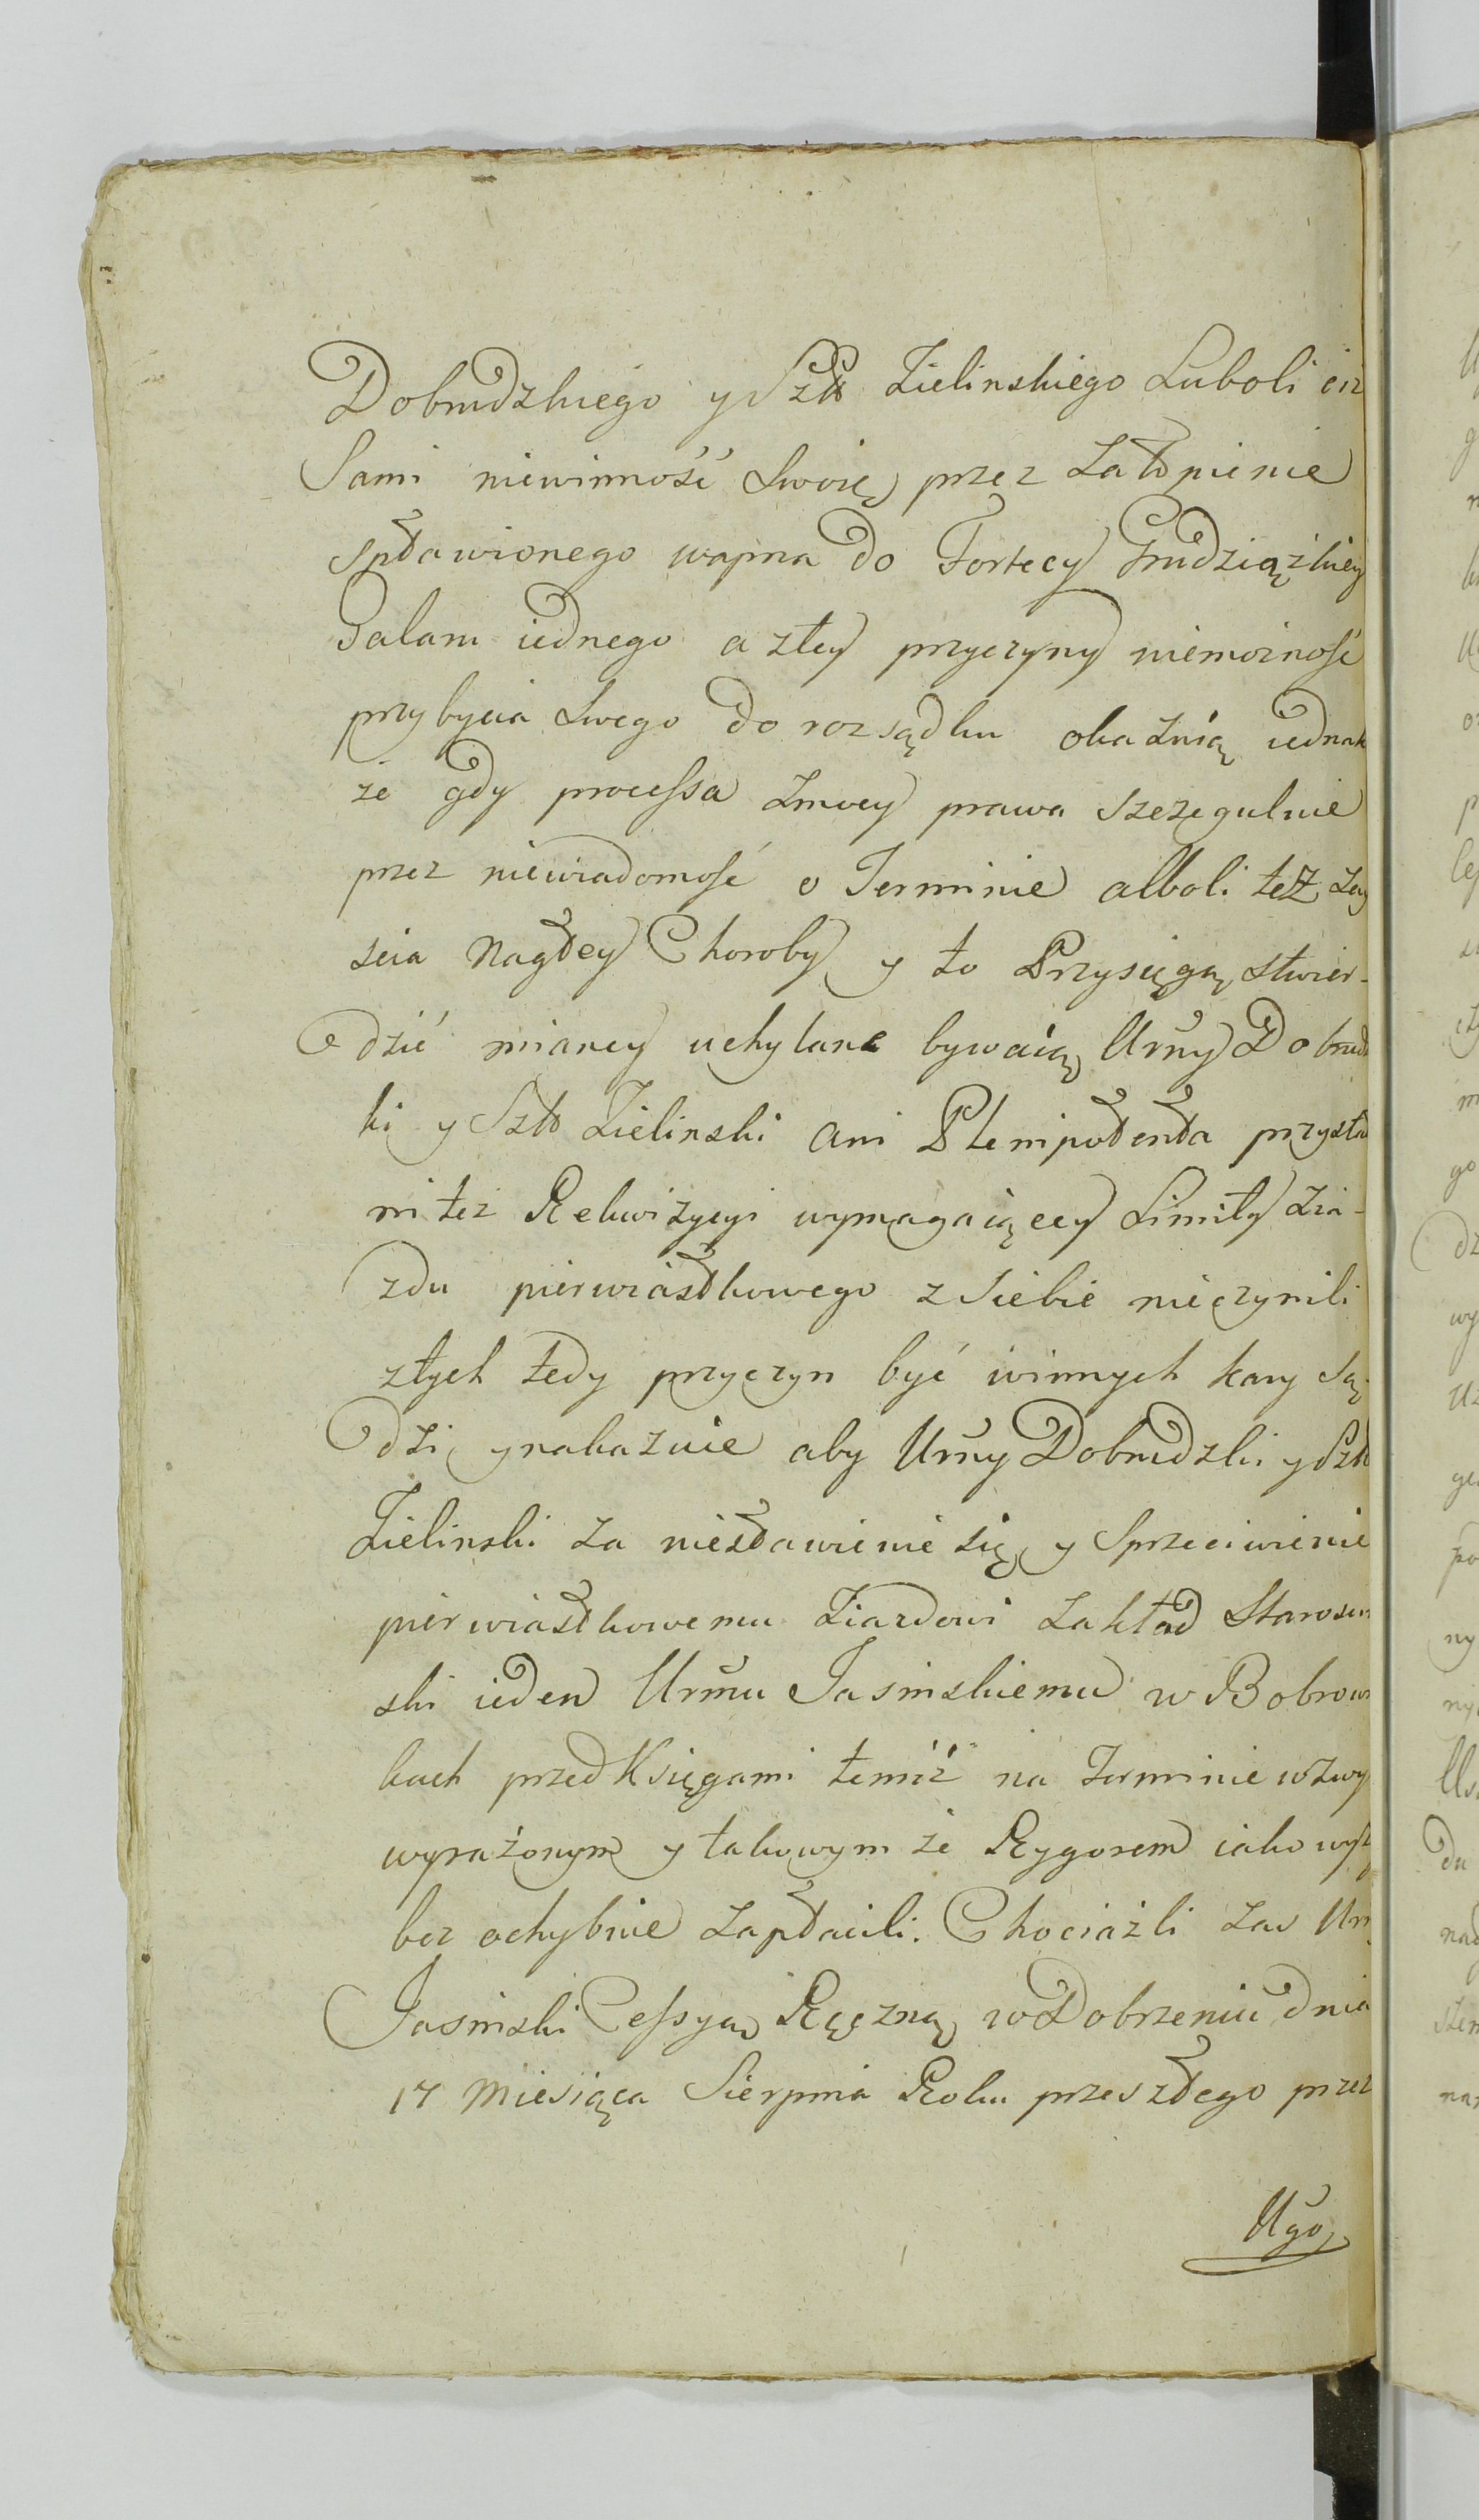 Dobrudzkiego y Szł Zielinskiego Luboli ciz
Sami niewinność Swoię przez Zatopienie
spławionego wapna do Fortecy Grudziążkiey
Galaru iednego a ztey przyczyny niemożność
przybycia Swego do rozsądku okażuią iednak
że gdy processa Zmocy prawa Szczegulnie
przez niewiadomość o Terminie alboli też Zay
scia Nagłey Choroby y to Przysięgą stwier-
dzić mianey uchylane bywaią Urny Dobrudz
ki y Szł Zielinski Ani Plenipotenta przysta
ni też Rekwizycyi wymagaiącey Limity Zia-
zdu pierwiastkowego z Siebie nieczynili
ztych tedy przyczyn być winnych kary Są
dzi y nakazuie aby Urny Dobrudzki y Szł
Zielinski za niestawienie się y Sprzeciwienie
pierwiastkowemu Ziazdowi Zakład Starosciń
ski ieden Urmu Jasinskiemu w Bobrown
kach przed Księgami temiż na Terminie wzwy
wyrażonym y takowym że Rygorem iako wyż
bez ochybnie Zapłacili. Chociażli Zas Urny
Jasinski Cessyą Ręczną w Dobrzeniu dnia
17 Miesiąca Sierpnia Roku przeszłego przez
Ugo